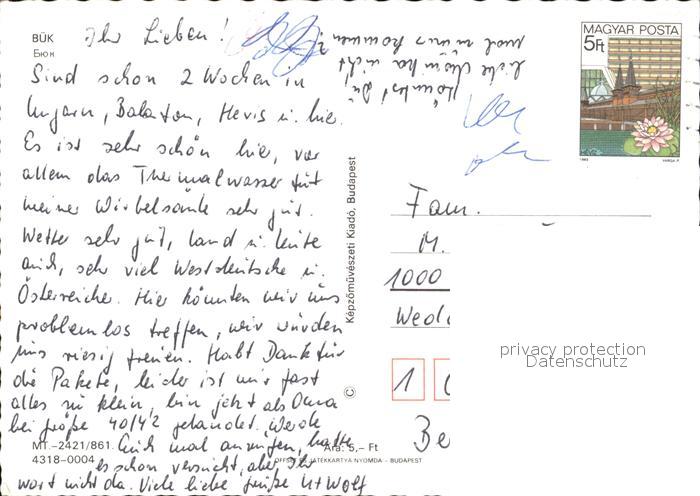 BÜK
Бюк
Ihr Lieben!
Sind schon 2 Wochen in
Ungarn, Balaton, Hevis u. hier.
Es ist sehr schön hier, vor
allem das Thermalwasser tut
meiner Wirbelsäule sehr gut.
Wetter sehr gut, Land u. Leute
auch, sehr viel Westdeutsche u.
Österreicher. Hier könnten wir uns
problemlos treffen, wir würden
uns riesig freuen. Habt Dank für
die Pakete, leider ist mir fast
alles zu klein, bin jetzt als Oma
bei größe 40/42 gelandet. Werde
Euch mal anrufen, hatte
es schon versucht, aber Ihr
wart nicht da. Viele liebe Grüße U+Wolf
Könntest Du,
liebe Monika nicht
mal zu uns kommen?
MT.–2421/861
4318–0004
Ára: 5,– Ft
OFFSET ÉS JÁTÉKKÁRTYA NYOMDA – BUDAPEST
Képzőművészeti Kiadó, Budapest
©
MAGYAR POSTA
5Ft
1983
VARGA P.
Fam.
M.
1000
1
Be
privacy protection
Datenschutz